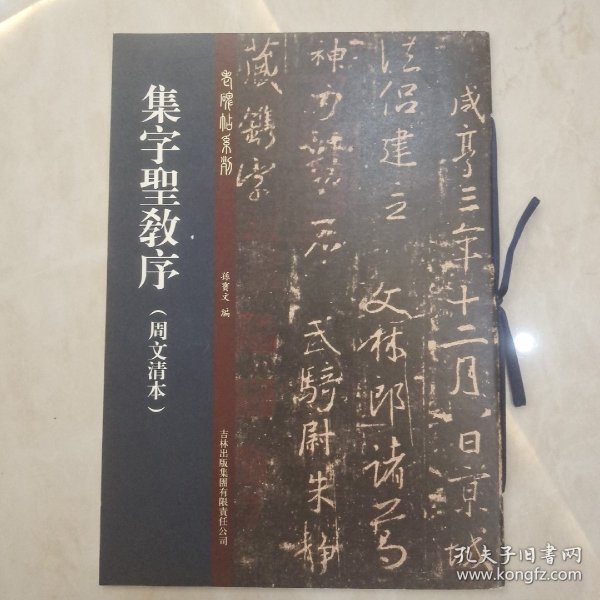 集字聖教序
(周文清本)
老碑帖系列
孫寶文 編
吉林出版集團有限責任公司
咸亨三年十二月八日京城
法侶建立 文林郎諸葛
神力勒石 武騎尉朱靜
藏鐫字
孔夫子旧书网
www.kongfz.com